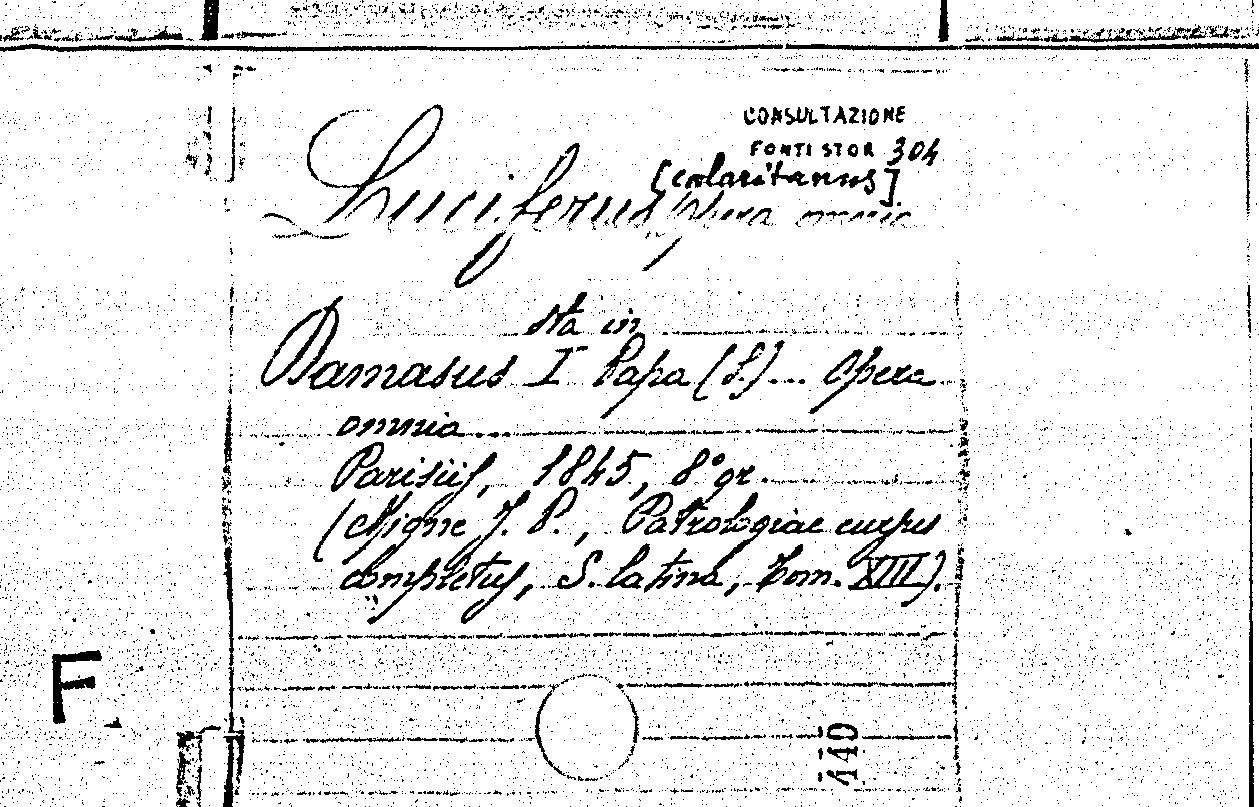 CONSULTAZIONE
FONTI STOR 304
[calaritanus]
Luciferus Opera omnia
sta in
Damasus I Papa (S.)... Opera
omnia...
Parisiis, 1845, 8° gr.
(Migne J. P., Patrologiae cursus
completus, S. latina, Tom. XIII).
F
440